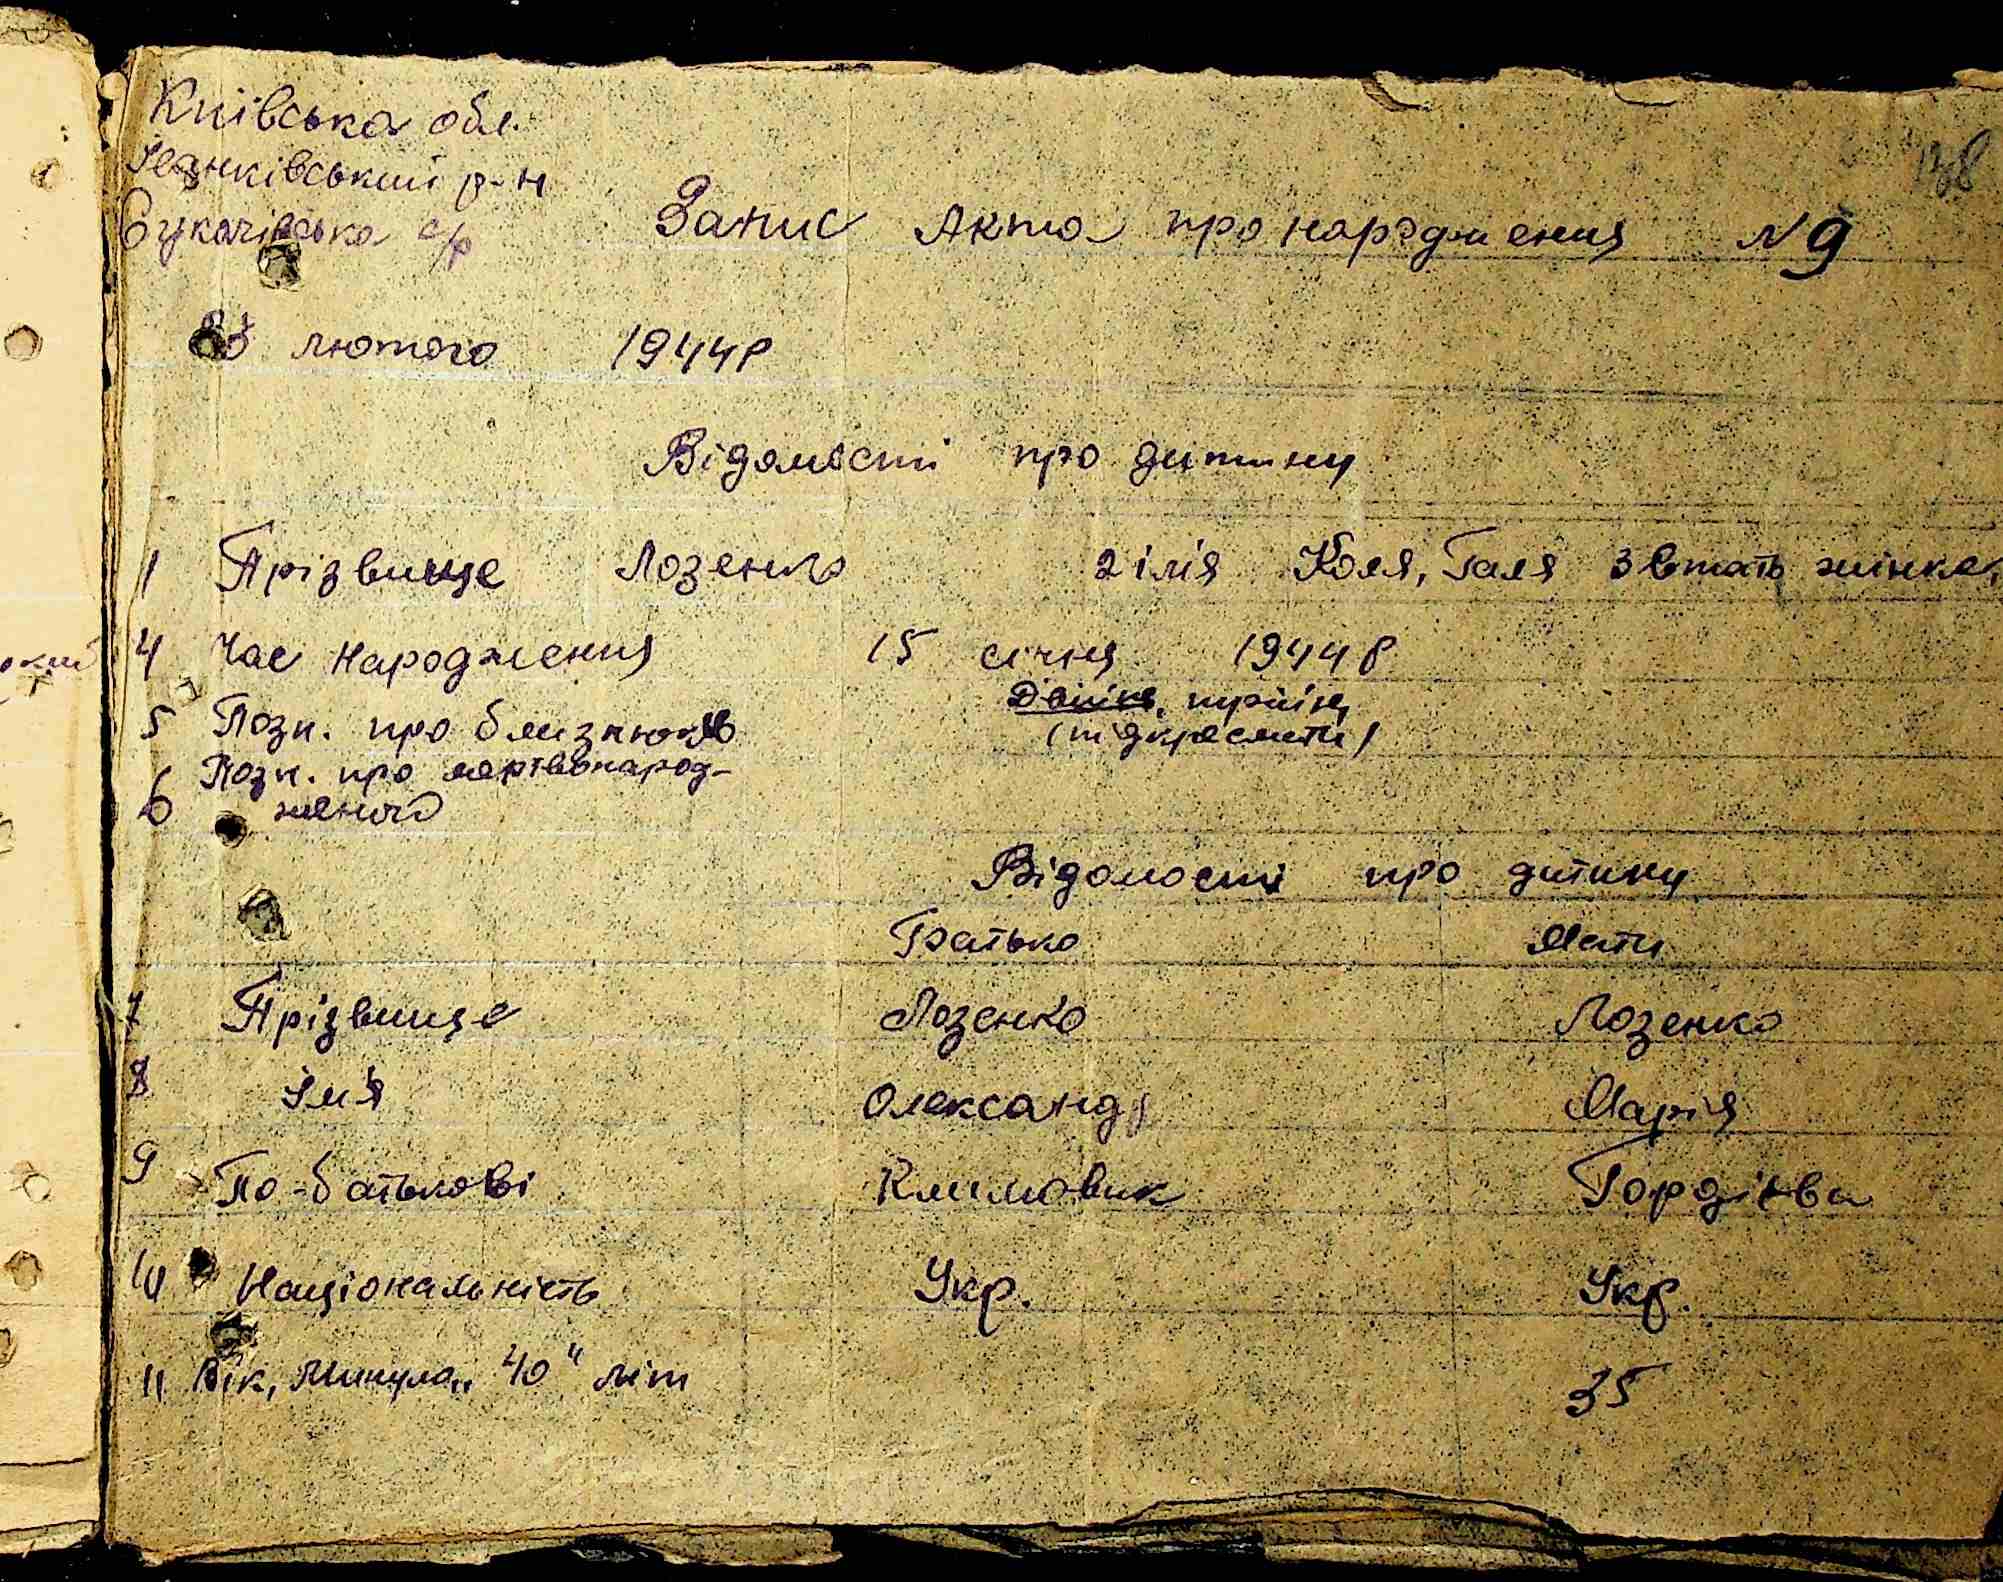 Київська обл.
Іванківський р-н
Букачівська с/р
138
Запис Акта про народження N 9
лютого 1944 р
Відомості про дитину
1 Прізвище Лозенко 2 ім'я Коля, Галя 3 Стать жінка.
4 Час народження 15 січня 1944 р
5 Позн. про близнюків Двійня, трійня,
(підкреслити)
6 Позн. про мертвонарод-
женого
Відомості про дитину
Батько Мати
7 Прізвище Лозенко Лозенко
8 Ім'я Олександр Марія
9 По-батькові Климовик Гордієва
10 Національність Укр. Укр.
11 Вік, минуло „40" літ 35